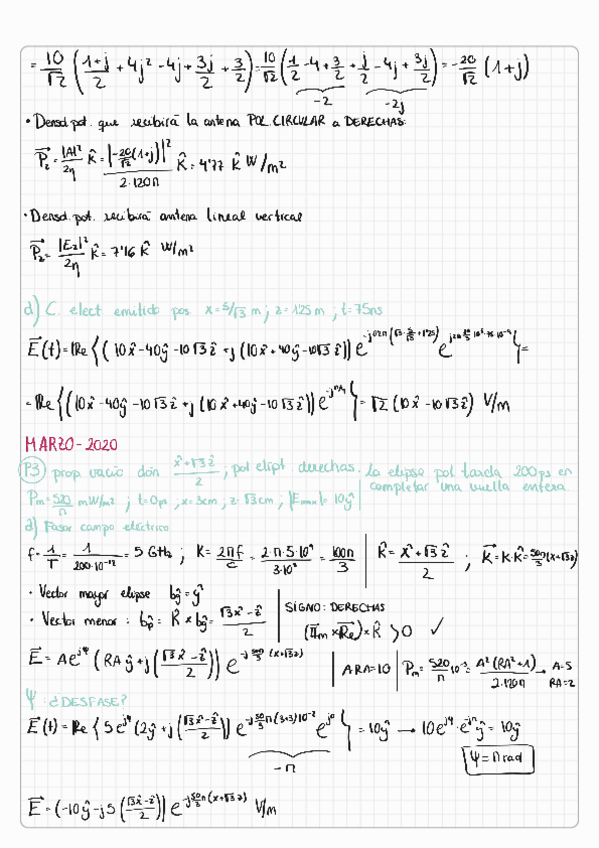 = 10/√2 ( (1+j)/2 + 4j² - 4j + 3j/2 + 3/2 ) = 10/√2 ( 1/2 - 4 + 3/2 + j/2 - 4j + 3j/2 ) = -20/√2 (1+j)
-2 -2j
• Densd.pot. que recibirá la antena POL.CIRCULAR a DERECHAS:
P⃗₂ = |A|²/2η k̂ = |-20/√2 (1+j)|² / 2·120π k̂ = 4'77 k̂ W/m²
• Densd.pot. recibirá antena lineal vertical
P⃗₂ = |E₂|²/2η k̂ = 7'16 k̂ W/m²
d) C. elect emitido pos x = 5/√3 m ; z = 1'25 m ; t = 75ns
E⃗(t) = Re { (10x̂ - 40ŷ - 10√3 ẑ + j (10x̂ + 40ŷ - 10√3 ẑ)) e
= Re { (10x̂ - 40ŷ - 10√3 ẑ + j (10x̂ + 40ŷ - 10√3 ẑ)) e } = √2 (10x̂ - 10√3 ẑ) V/m
MARZO-2020
P3) prop vacío dirn (x̂+√3 ẑ)/2 ; pol elípt derechas. La elipse pol tarda 200ps en
completar una vuelta entera
Pm = 520/π mW/m² ; t = 0ps ; x = 3cm ; z = √3cm ; |Emax| = 10ŷ
a) Fasor campo eléctrico
f = 1/T = 1/200·10⁻¹² = 5 GHz ; K = 2πf/c = 2·π·5·10⁹/3·10⁸ = 100π/3 k̂ = (x̂+√3 ẑ)/2 ; k⃗ = k·k̂ = 50π/3 (x+√3z)
• Vector mayor elipse b̂g = ŷ
• Vector menor : b̂p = k̂ × b̂g = (√3 x̂ - ẑ)/2
SIGNO: DERECHAS
(Im × Re) · k̂ > 0 ✓
E⃗ = Ae^jψ ( RA ŷ + j ( (√3 x̂ - ẑ)/2 )) e^-j 50π/3 (x+√3z)
A·RA = 10 Pm = 520/π 10⁻³ = A² (RA²+1)/2·120π → A=5
RA=2
Ψ : ¿DESFASE?
E⃗(t) = Re { 5e^jψ (2ŷ + j ( (√3 x̂ - ẑ)/2 )) e^-j 50π/3 (3+3)10⁻² e^j0 } = 10ŷ → 10e^jψ · e^-jπ ŷ = 10ŷ
-π
Ψ = π rad
E⃗ = (-10ŷ - j5 ( (√3 x̂ - ẑ)/2 )) e^-j 50π/3 (x+√3z) V/m